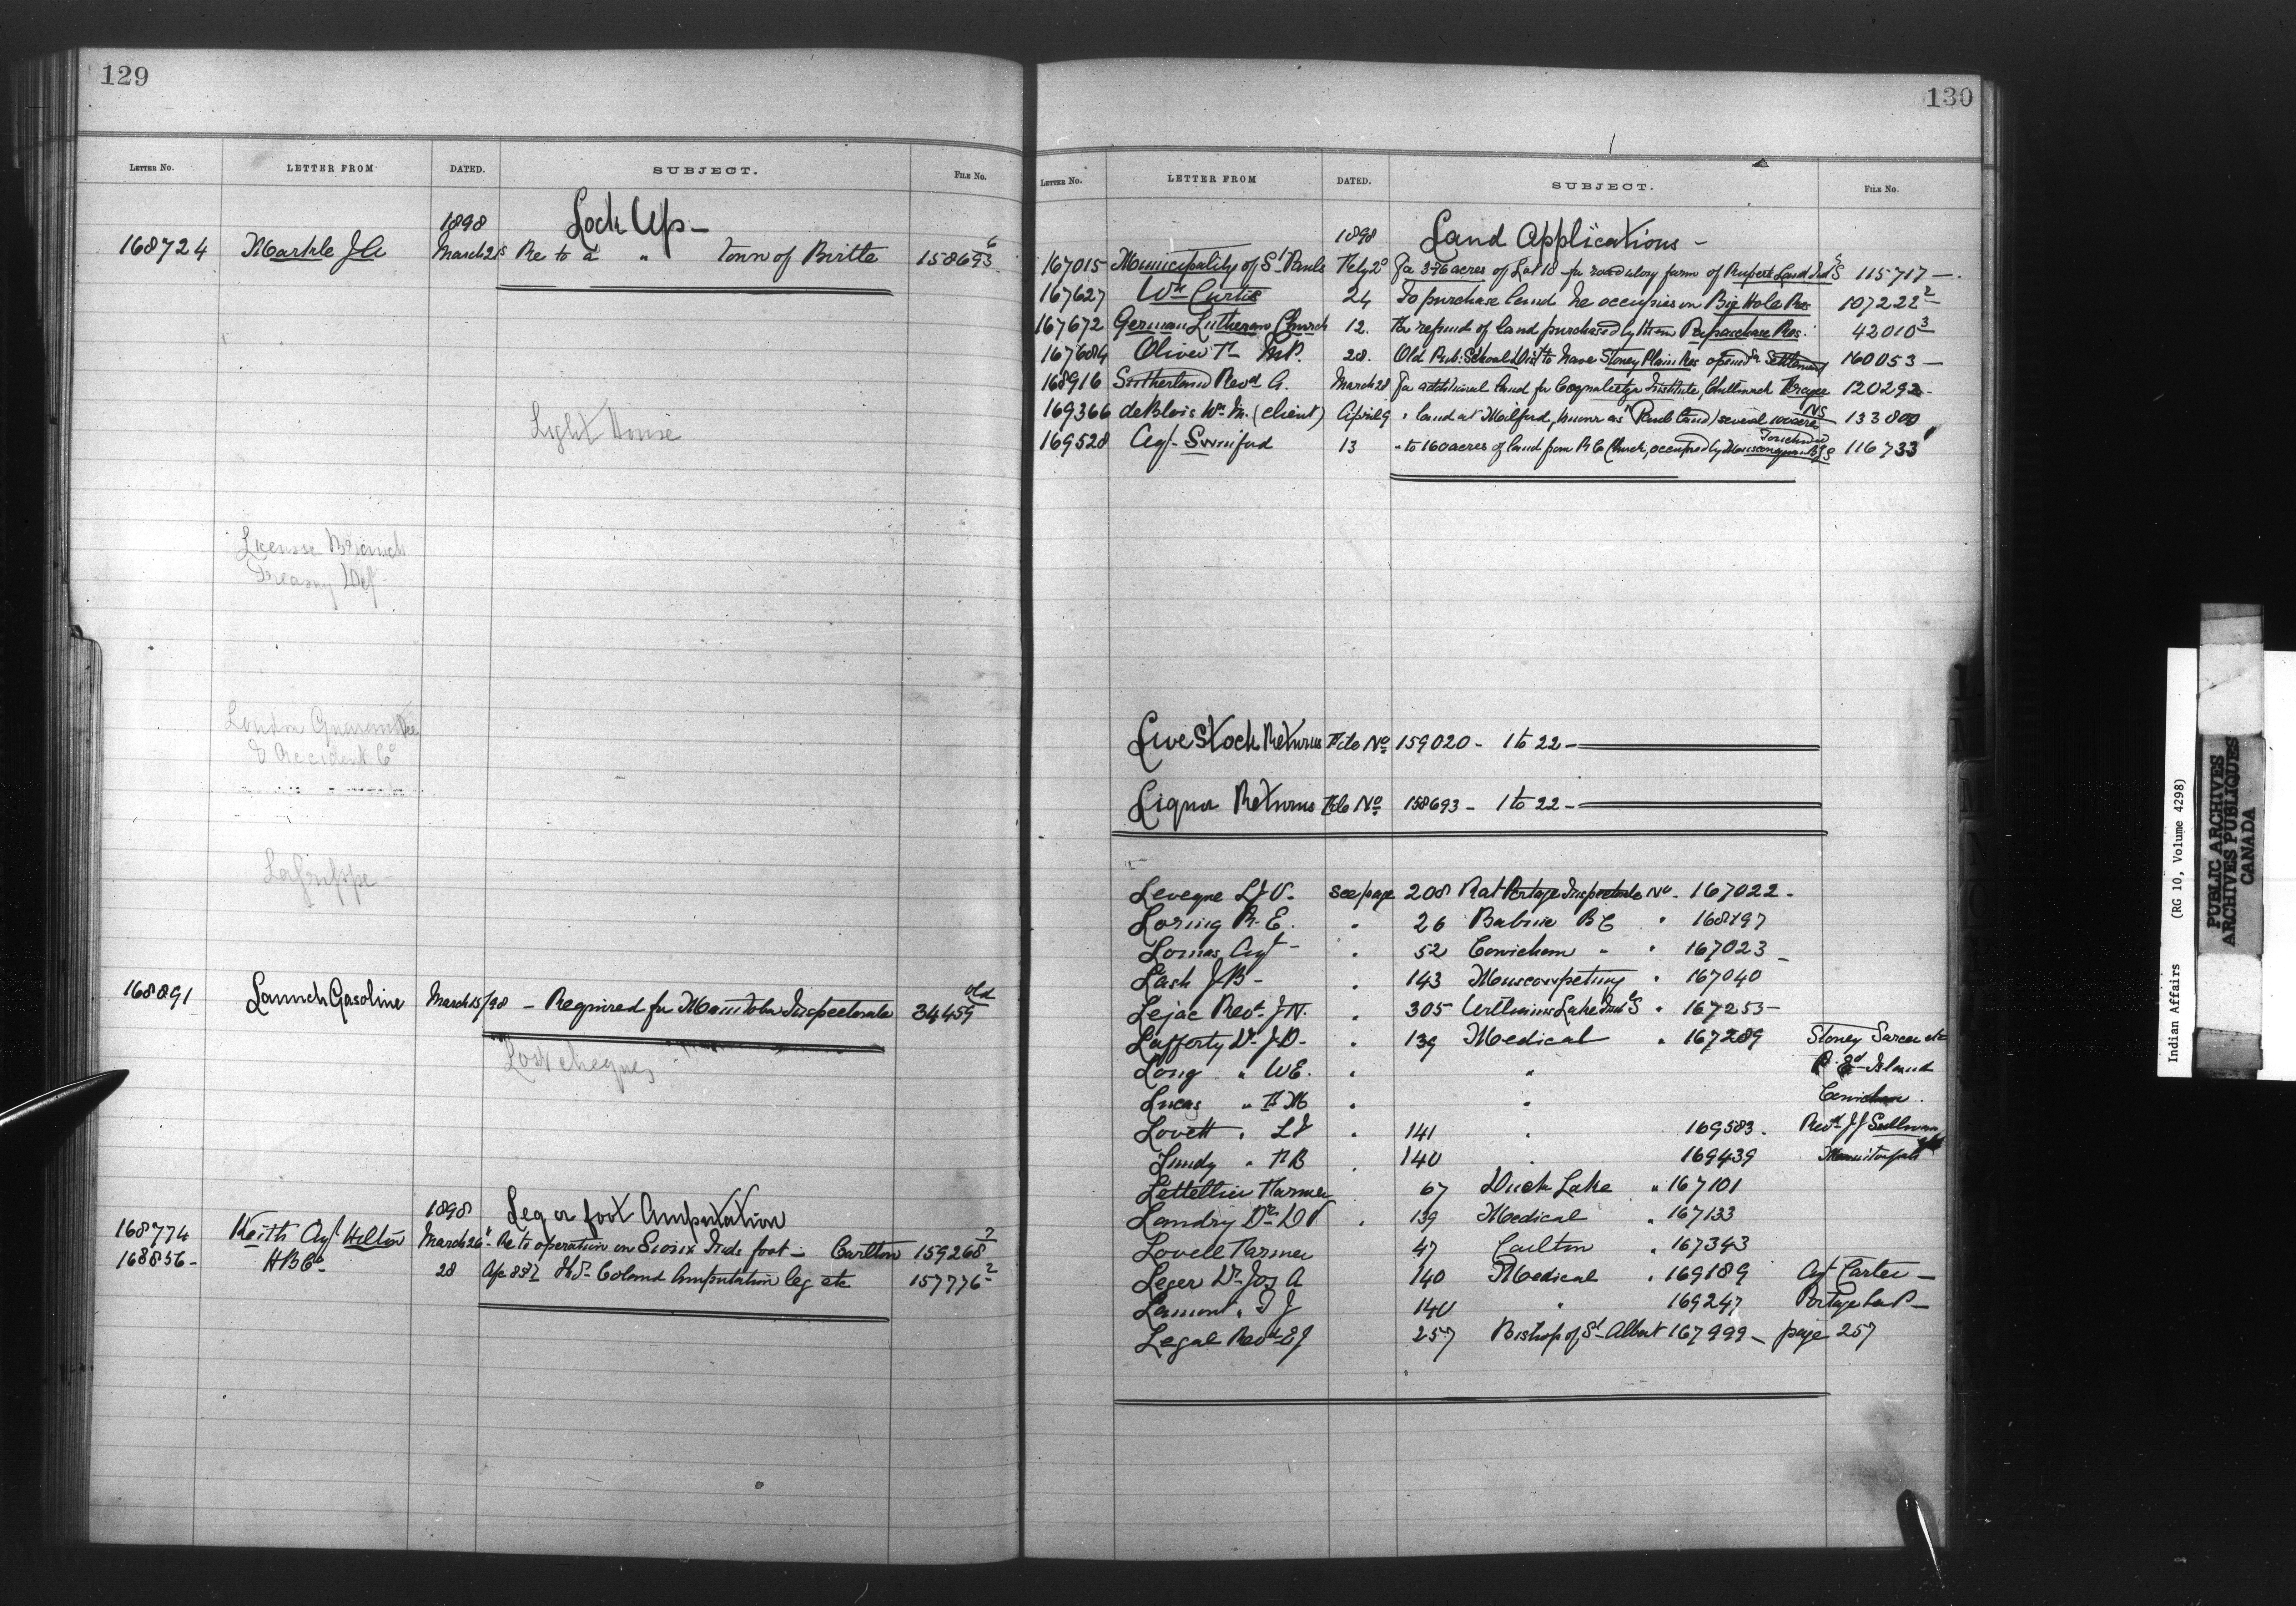 129
LETTER No. LETTER FROM DATED. SUBJECT. FILE No.
1898 Lock Ups -
168724 Markle J A March 21 Re to a " Town of Birtle 158693 6
Light House
License Branch
Treasury Dept
London Guarantee
& Accident Co
LaGrippe -
168891 Launch Gasoline March 15/98 - Required for Manitoba Inspectorate 34459 old
Lost cheques
1898 Leg or foot Amputation
168774 Keith Agt Hilton March 26 Re to operation on Sioux Inds foot - Carlton 159268 7
168856 - H B Co - 28 Amputation leg etc 157776 2
130
LETTER No. LETTER FROM DATED. SUBJECT. FILE No.
1898 Land Applications -
167015 Municipality of St Pauls Feby 2 For 376 acres of Lot 18 - for farm of Rupert Land Ind S 115717 -
167627 Wm Curtis 24 To purchase land he occupies on Big Hole Res 107222 2
167672 German Lutheran Church 12. For refund of land purchased by them Papaschase Res. 42010 3
167684 Oliver F - M.P. 28. Old to have Stoney Plain Res opened for Settlement 160053 -
168916 Sutherland Revd A. March 28 For additional land for Coqualeetza Institute, Chilliwack 120292 -
169366 deBlois Wm M. (client) April 9 " land at Milford, known as Land) several 100 acres NS 133800
169528 Agt - Swinford 13 - to 160 acres of land from R C Church, occupied by 116733
Live Stock Returns File No 159020 - 1 to 22 -
Liquor Returns File No 158693 - 1 to 22 -
Leveque L J V - see page 208 Rat Portage Inspectorate No - 167022 -
Loring R. E. " 26 Babine B C " 168197
Lomas Agt - " 52 Cowichan " " 167023 -
Lash J B - " 143 Muscowpetung " 167040
Lejac Revd J N. " 305 Williams Lake Ind S " 167253 -
Lafferty Dr J D - " 139 Medical " 167289 Stoney Sarcee etc
Long " W E. " " P. Ed Island
Lucas " " " Cowichan .
Lovett " L J " 141 " 169583 . Revd J J Sullivan
Lundy " F B " 140 " 169439
Lettellier Farmer 67 Duck Lake " 167101
Landry Dr D V " 139 Medical " 167133
Lovell Farmer 47 Carlton " 167343
Leger Dr Jos A 140 Medical " 169189 Agt Carter -
Lamont " T J 140 " 169247 Portage la P -
Legal Revd E J 257 Bishop of St - Albert 167999 - page 257
Indian Affairs (RG 10, Volume 4298)
PUBLIC ARCHIVES
ARCHIVES PUBLIQUES
CANADA